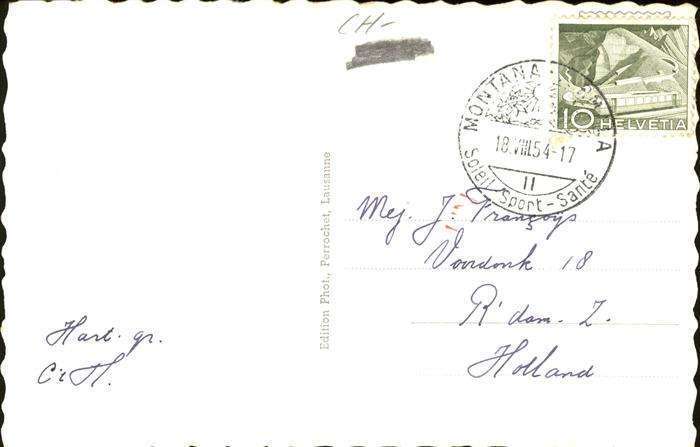 CH-
10 HELVETIA
MONTANA
18.VIII.54-17
II
Soleil Sport-Santé
Edition Phot., Perrochet, Lausanne
Mej. J. Françoys
Voordonk 18
R'dam. Z.
Holland
Hart. gr.